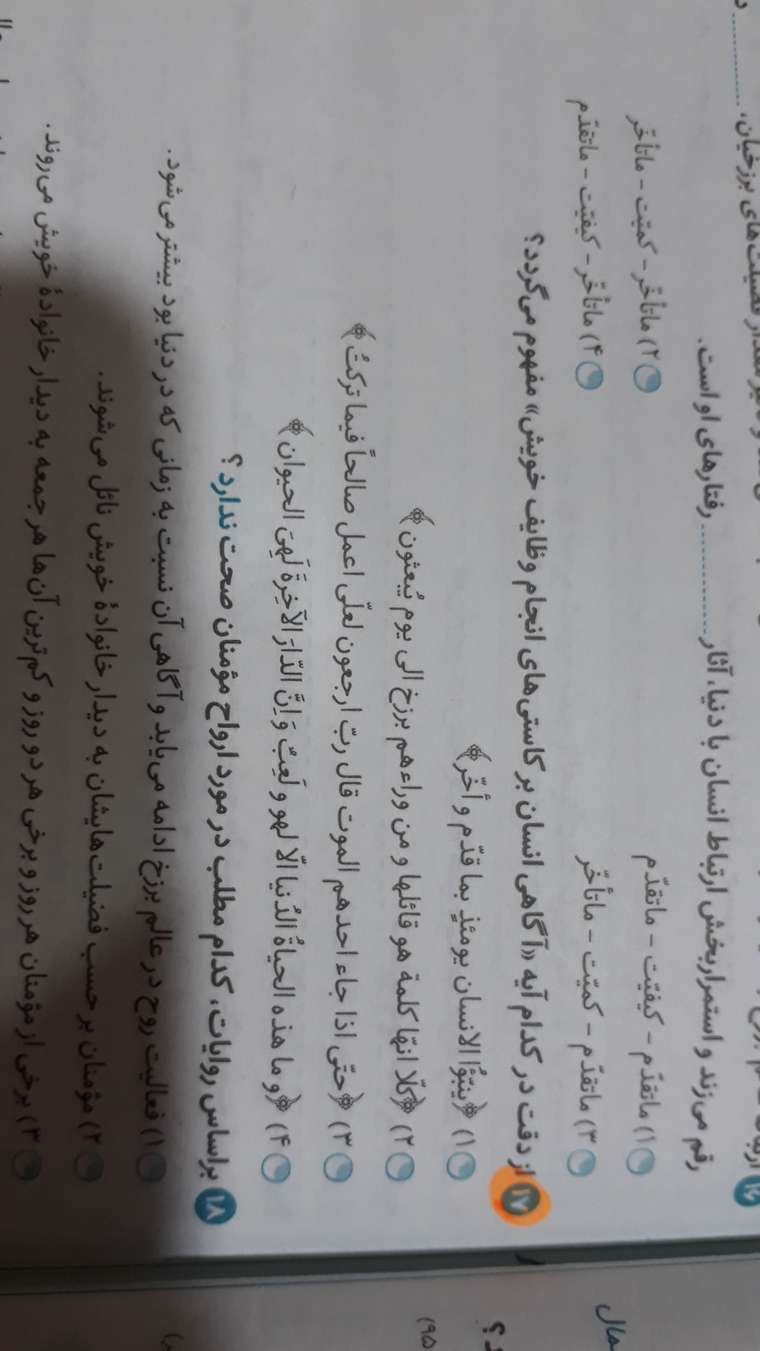 رقم می‌زند و استمراربخش ارتباط انسان با دنیا، آثار .............. رفتارهای او است.
۱) ماتقدّم - کیفیّت - ماتقدّم
۲) ماتأخّر - کمیّت - ماتأخّر
۳) ماتقدّم - کمیّت - ماتأخّر
۴) ماتأخّر - کیفیّت - ماتقدّم
۱۷ از دقت در کدام آیه «آگاهی انسان بر کاستی‌های انجام وظایف خویش» مفهوم می‌گردد؟
۱) ﴿ینبّؤُا الانسان یومئذٍ بما قدّم و أخّر﴾
۲) ﴿کلّا انّها کلمة هو قائلها و من وراءهم برزخ الی یوم یُبعثون﴾
۳) ﴿حتّی اذا جاء احدهم الموت قال ربّ ارجعون لعلّی اعمل صالحاً فیما ترکتُ﴾
۴) ﴿و ما هذه الحیاةُ الدُنیا الّا لهو و لَعِبٌ وَ اِنَّ الدّارَ الآخِرةَ لَهِیَ الحیوان﴾
۱۸ براساس روایات، کدام مطلب در مورد ارواح مؤمنان صحت ندارد؟
۱) فعالیت روح در عالم برزخ ادامه می‌یابد و آگاهی آن نسبت به زمانی که در دنیا بود بیشتر می‌شود.
۲) مؤمنان بر حسب فضیلت‌هایشان به دیدار خانوادهٔ خویش نائل می‌شوند.
۳) برخی از مؤمنان هر روز و برخی هر دو روز و کم‌ترین آن‌ها هر جمعه به دیدار خانوادهٔ خویش می‌روند.